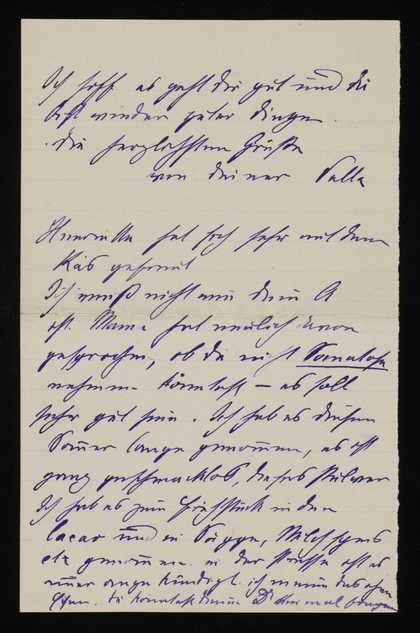 Ich hoff es geht dir gut und du
bist wieder guter Dinge.
die herzlichsten Grüße
von deiner Salka
Henriette hat sich sehr mit dem
Käs gefreut
Ich muß nicht wie dein A
ist. Mama hat neulich davon
gesprochen, ob du nicht Somatose
nehmen könntest – es soll
sehr gut sein. Ich hab es diesen
Sommer lange genommen, es ist
ganz geschmacklos, dieses Pulver
Ich hab es zum Frühstück in den
Cacao und in Suppe, Milchspeis
etc genommen. in der Presse ist es
immer angekündigt. ich meine das ohne
du könntest deinen Dr einmal fragen